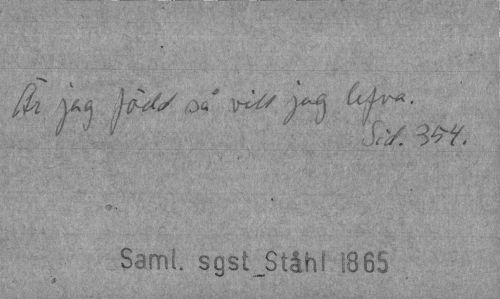 Är jag född så vill jag lefva.
Sid. 354.
Saml. sgst_Ståhl 1865